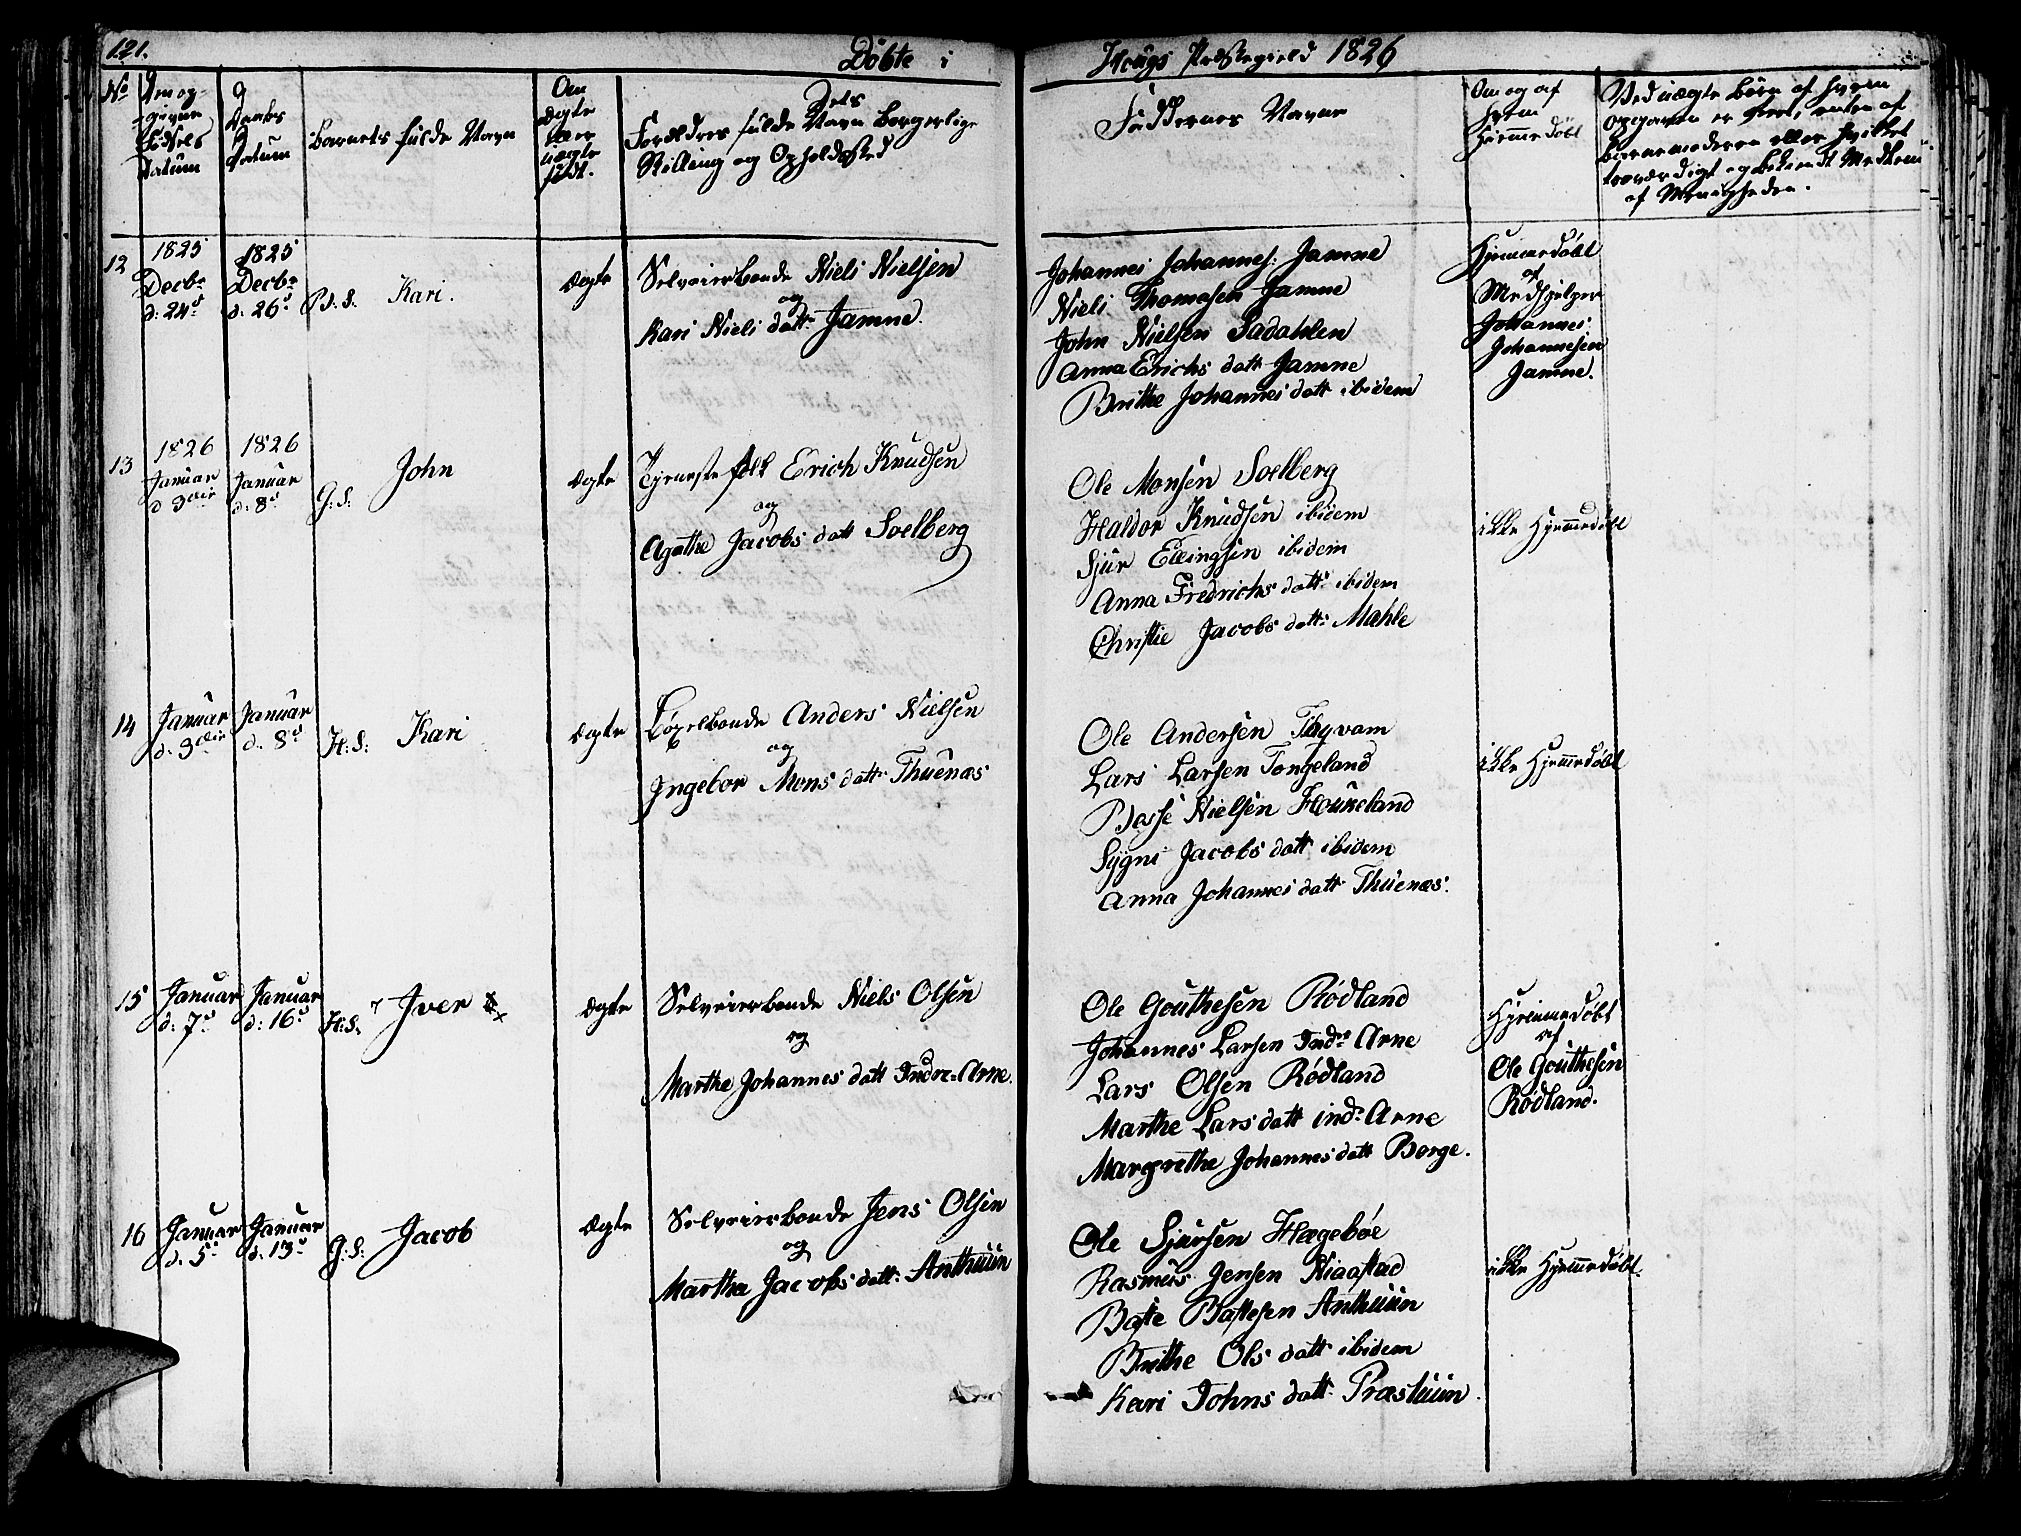 121. Døbte i Hougs Præstegield 1826
No
Den opgivne Fødsels Datum
Daabs Datum
Barnets fulde Navn
Om ægte eller uægte født.
Forældres fulde Navn dets borgerlige Stilling og Opholdssted
Faddernes Navne
Om og af hvem hjemmedøbt
Ved uægte Børn af hvem
opgaven er skeet, enten af
Barnemoderen eller hvilket
troværdigt og bekiendt Medlem
af Menigheden.
12
1825
Decbr
d: 24d
1825
Decbr
d. 26d
Kari.
ægte
Selveierbonde Niels Nielsen
og
Kari Niels datt: Jamne.
Johannes Johannes: Jamne
Niels Thomasen Jamne
John Nielsen Sadahlen
Anna Erichs datt Jamne
Brithe Johannes datt ibidem
Hjemmedøbt
af
Medhjelper
Johannes
Johannesen
Jamne.
13
1826
Januar
d 3die
1826
Januar
d: 8d
G: S:
John
ægte
Tjenestefolk Erich Knudsen
og
Agathe Jacobs datt Soelberg
Ole Monsen Soelberg
Haldor Knudsen ibidem
Sjur Ellingsen ibidem
Anna Fredrichs datt: ibidem
Christie Jacobs datt: Mahle
ikke Hjemmedøbt
14
Januar
d: 3die
Januar
d. 8d
H: S:
Kari
ægte
Løxelbonde Anders Nielsen
og
Ingebor Mons datt: Thuenæs
Ole Andersen
Lars Larsen Tongeland
Basse Nielsen Houkeland
Sygni Jacobs datt ibidem
Anna Johannes datt: Thuenæs.
ikke Hjemmedøbt
15
Januar
d: 7d
Januar
d: 16d
H: S:
Iver
ægte
Selveierbonde Niels Olsen
og
Marthe Johannes datt Indre-Arne.
Ole Gouthesen Rødland
Johannes Larsen Indr: Arne
Lars Olsen Rødland
Marthe Lars datt ind: Arne
Margrethe Johannes datt Borge.
Hjemmedøbt
af
Ole Gouthesen
Rødland.
16
Januar
d. 5d
Januar
d. 13d
G: S:
Jacob
ægte
Selveierbonde Jens Olsen
og
Martha Jacobs datt: Anthuun
Ole Sjursen Hægebøe
Rasmus Jensen
Baste Bastesen Anthuun
Brithe Ols datt ibidem
Kari Johns datt: Præstuun.
ikke Hjemmedøbt.